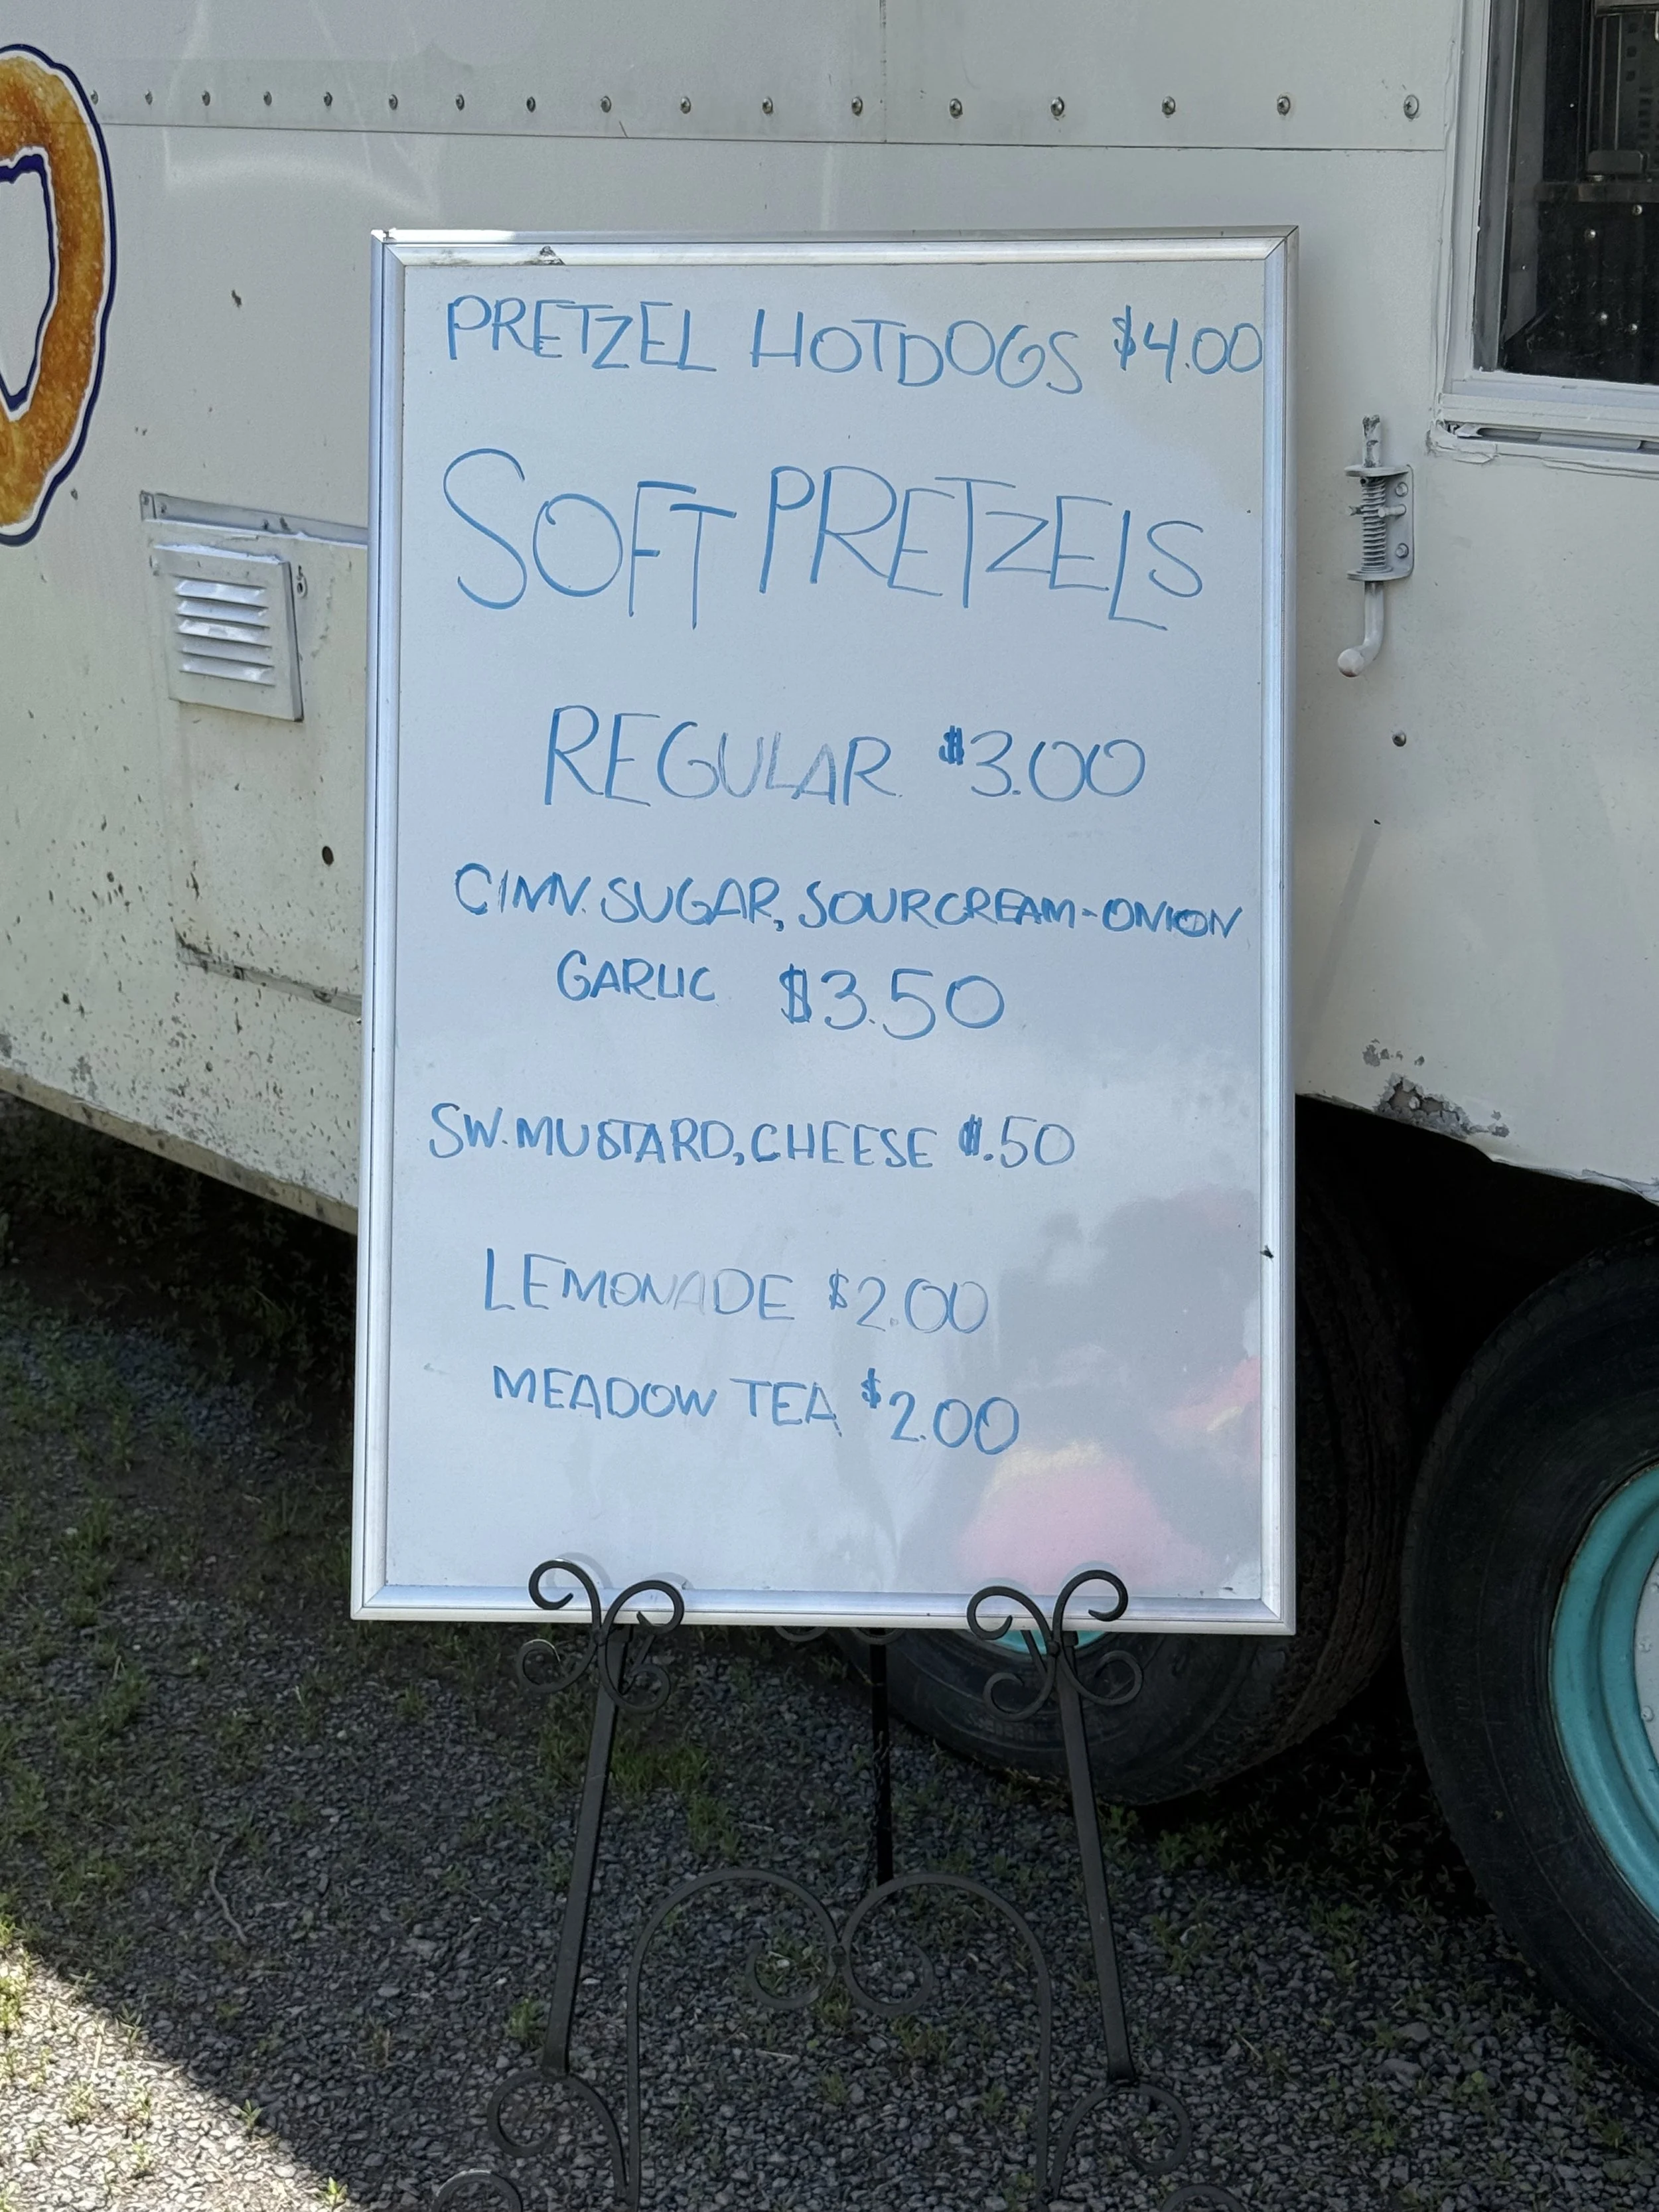 PRETZEL HOTDOGS $4.00
SOFT PRETZELS
REGULAR $3.00
CINN. SUGAR, SOURCREAM-ONION
GARLIC $3.50
SW. MUSTARD, CHEESE $.50
LEMONADE $2.00
MEADOW TEA $2.00